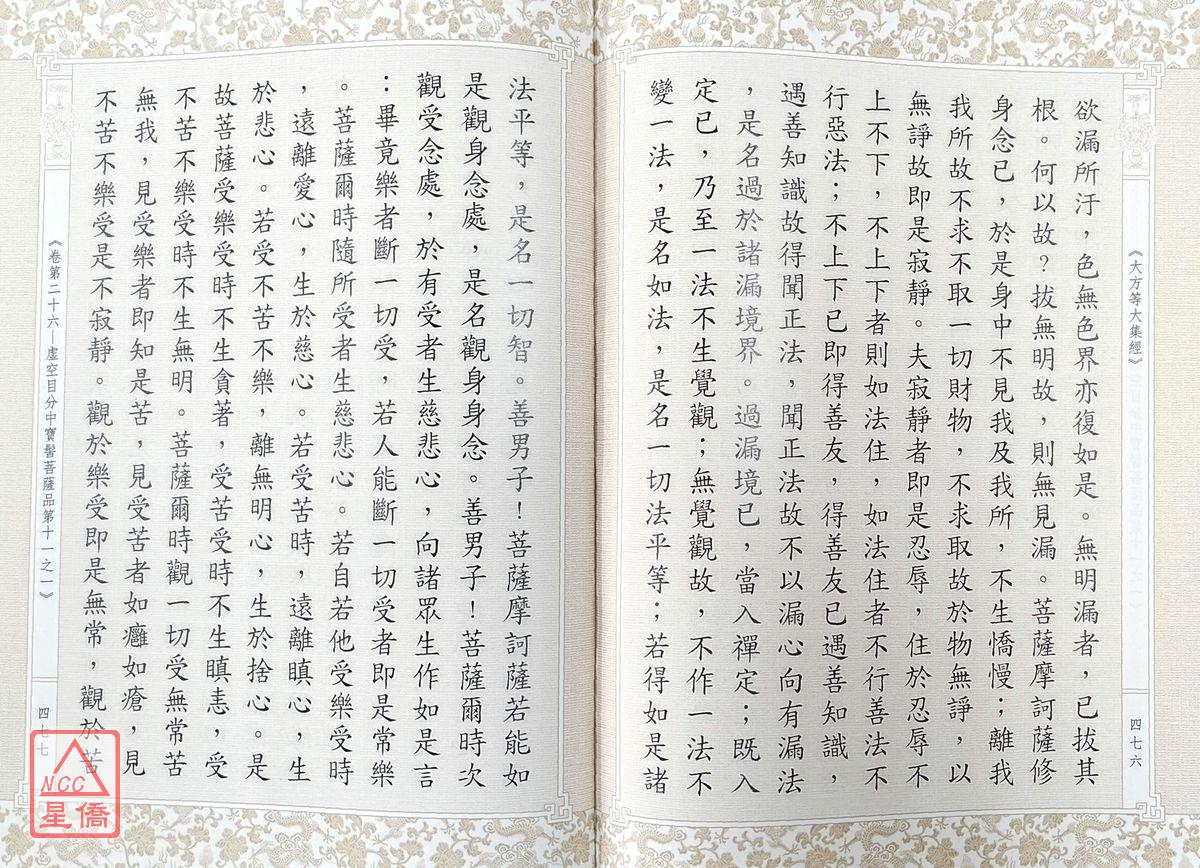 《大方等大集經》
四七六
欲漏所汙，色無色界亦復如是。無明漏者，已拔其
根。何以故？拔無明故，則無見漏。菩薩摩訶薩修
身念已，於是身中不見我及我所，不生憍慢；離我
我所故不求不取一切財物，不求取故於物無諍，以
無諍故即是寂靜。夫寂靜者即是忍辱，住於忍辱不
上不下，不上下者則如法住，如法住者不行善法不
行惡法；不上下已即得善友，得善友已遇善知識，
遇善知識故得聞正法，聞正法故不以漏心向有漏法
，是名過於諸漏境界。過漏境已，當入禪定；既入
定已，乃至一法不生覺觀；無覺觀故，不作一法不
變一法，是名如法，是名一切法平等；若得如是諸
法平等，是名一切智。善男子！菩薩摩訶薩若能如
是觀身念處，是名觀身身念。善男子！菩薩爾時次
觀受念處，於有受者生慈悲心，向諸眾生作如是言
：畢竟樂者斷一切受，若人能斷一切受者即是常樂
。菩薩爾時隨所受者生慈悲心。若自若他受樂受時
，遠離愛心，生於慈心。若受苦時，遠離瞋心，生
於悲心。若受不苦不樂，離無明心，生於捨心。是
故菩薩受樂受時不生貪著，受苦受時不生瞋恚，受
不苦不樂受時不生無明。菩薩爾時觀一切受無常苦
無我，見受樂者即知是苦，見受苦者如癰如瘡，見
不苦不樂受是不寂靜。觀於樂受即是無常，觀於苦
《卷第二十六—虛空目分中寶髻菩薩品第十一之一》
四七七
NCC
星僑